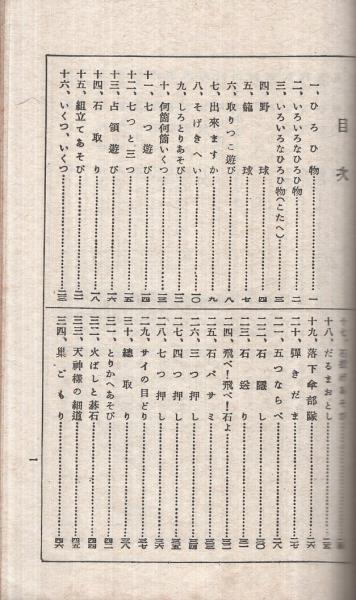 目次
一、ひろひ物……一
二、いろいろなひろひ物……二
三、いろいろなひろひ物(こたへ)……三
四、野球……四
五、籠球……七
六、取りつこ遊び……八
七、出來ますか……九
八、そげきへい……一〇
九、しろとりあそび……一二
十、何箇何箇いくつ……一三
十一、七つ遊び……一四
十二、七つと三つ……一五
十三、占領遊び……一六
十四、石取り……一八
十五、組立てあそび……二一
十六、いくつ、いくつ……二三
十八、だるまおとし
十九、落下傘部隊……二六
二十、彈きだま……二七
二一、五つならべ……二八
二二、石隱し……三〇
二三、石送り……三一
二四、飛べ!飛べ!石よ……三二
二五、石バサミ……三三
二六、三つ押し……三四
二七、四つ押し……三五
二八、七つ押し……三六
二九、サイの目どり……三七
三十、總取り……三八
三一、とりかへあそび……四二
三二、火ばしと碁石……四四
三三、天神樣の細道……四五
三四、巢ごもり……四六
一